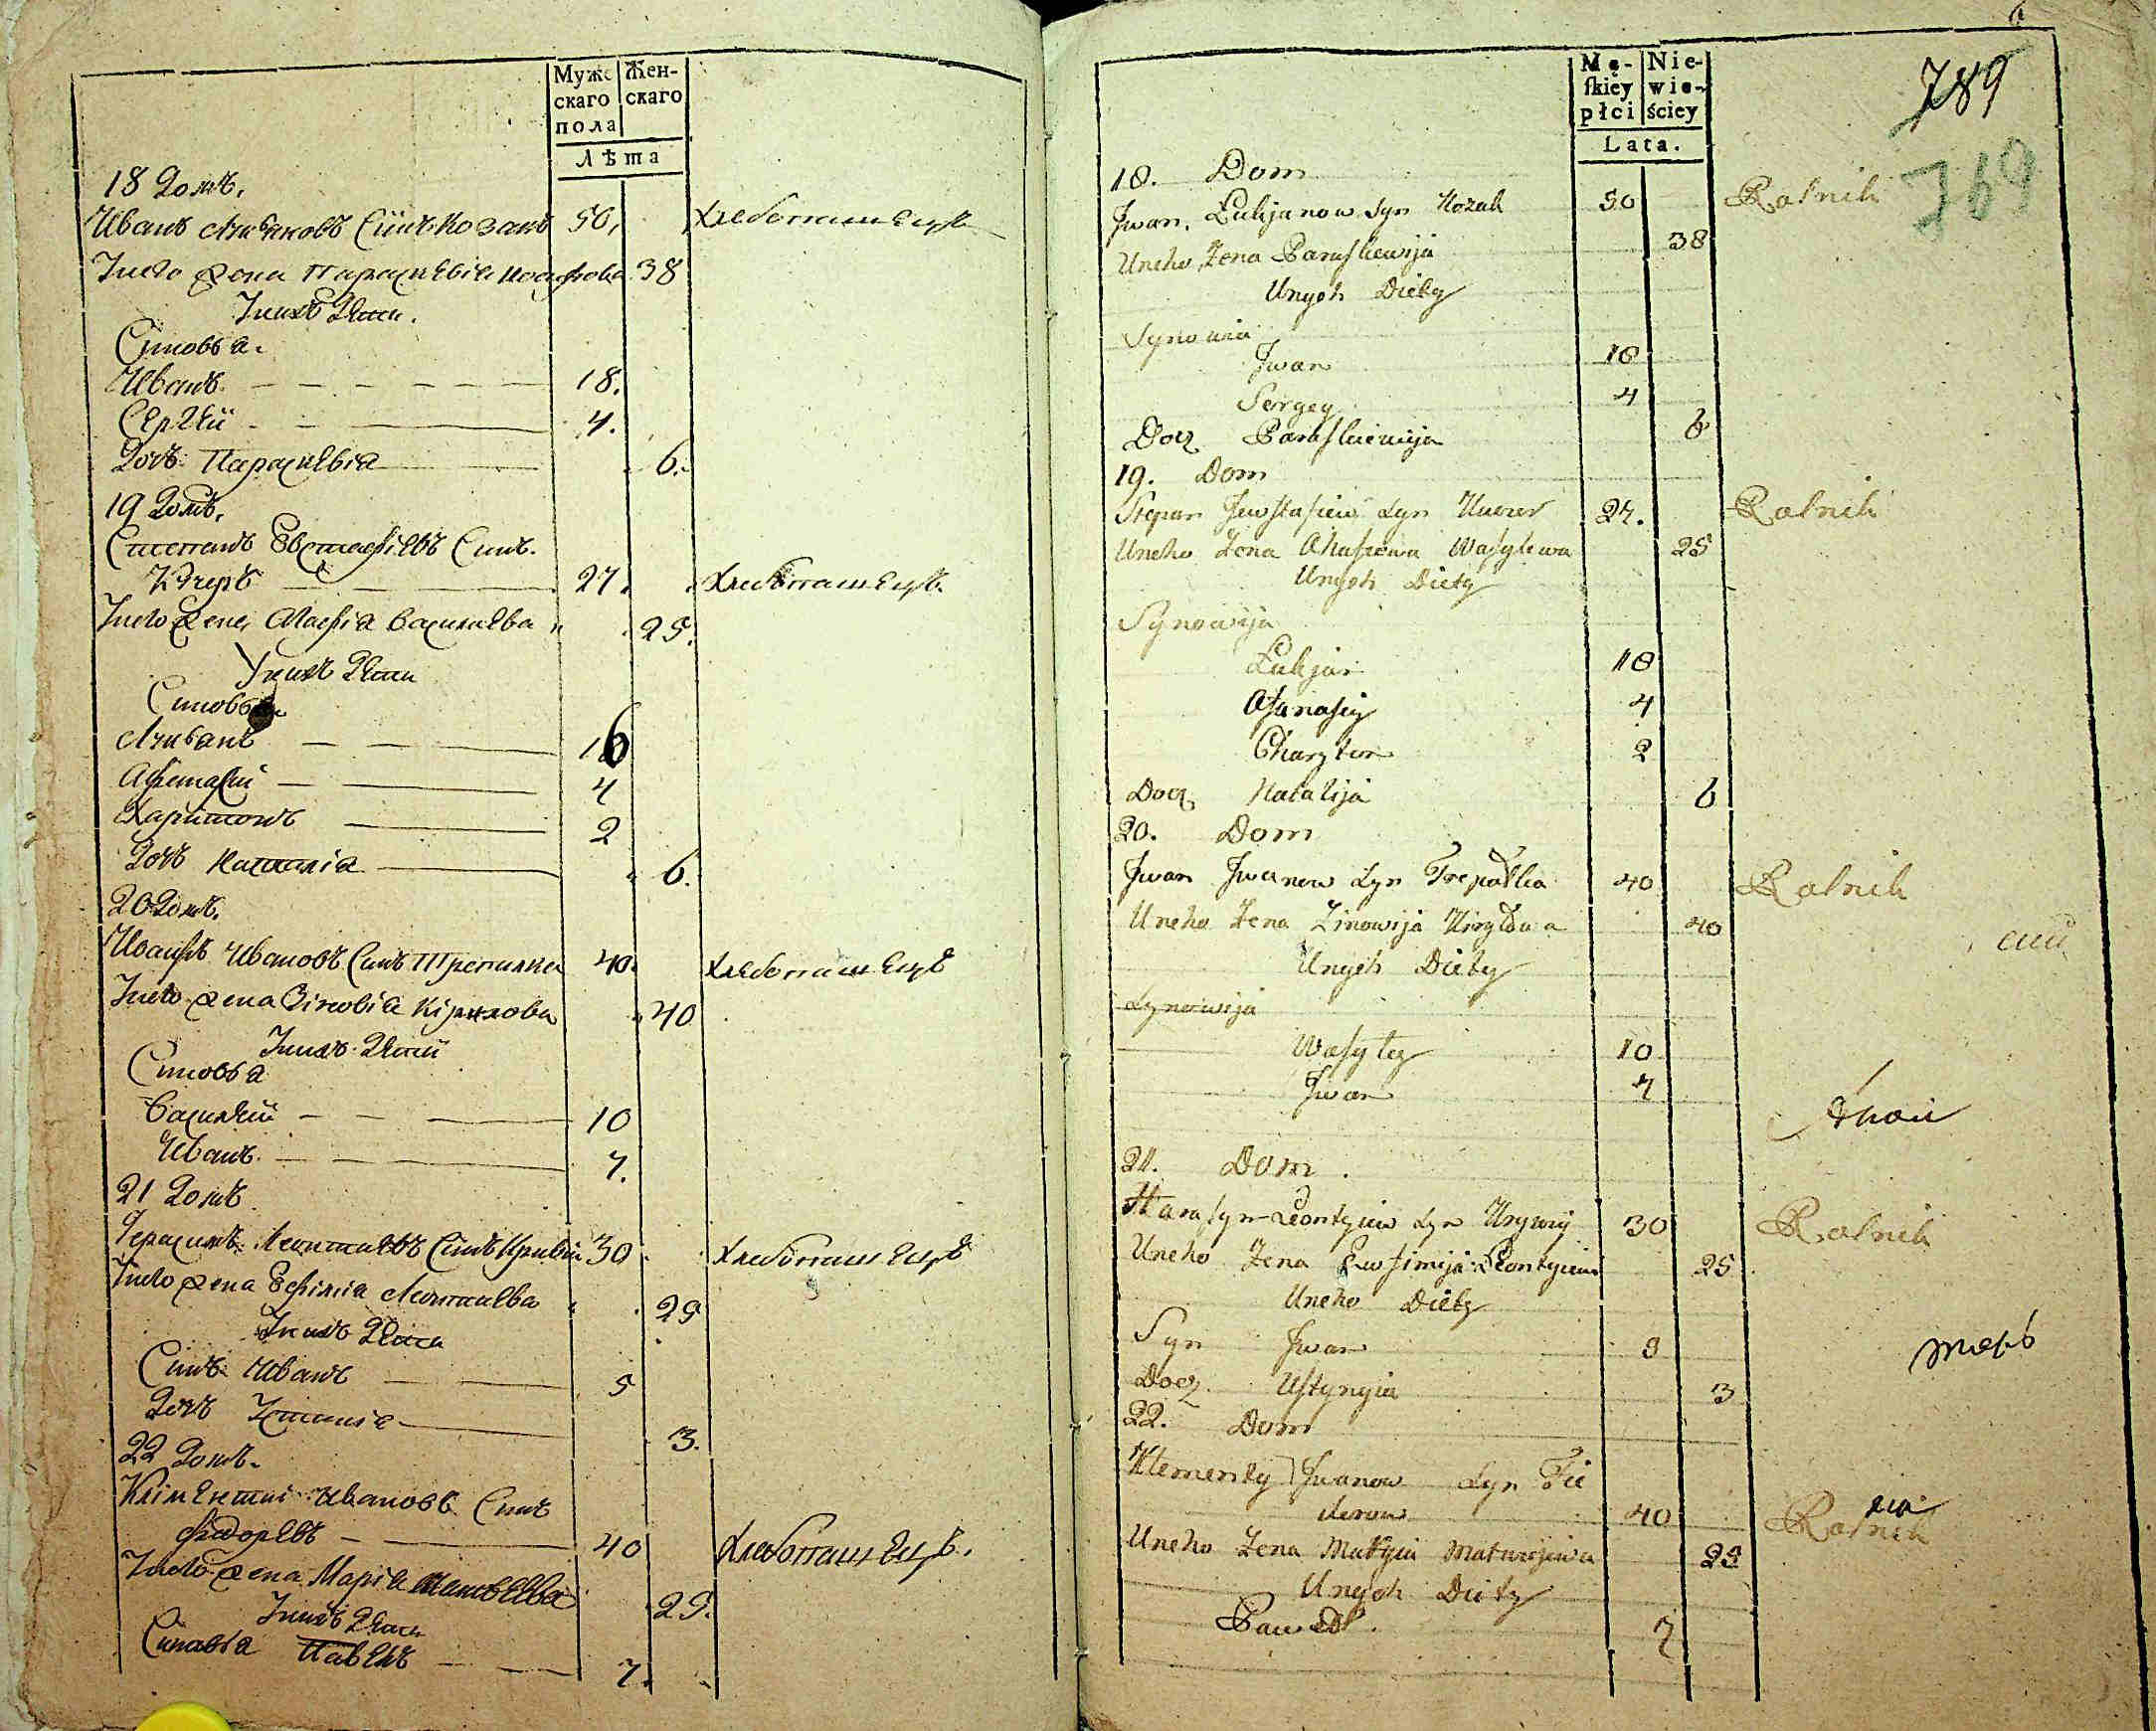 Муже
скаго
пола
Жен-
скаго
Лѣта
18 Домъ.
Иванъ Лукьяновъ Синъ Козакъ 50, Хлебопашецъ
Унего жена Параскевія 38
Унихъ Дети.
Синовья.
Иванъ 18.
Сергей 4.
Дочь Параскевія 6.
19 Домъ,
Степанъ Евстафіевъ Синъ.
Кучеръ 27. Хлебопашецъ.
Унего жена Агафія Василиева 25.
Унихъ Дети
Синовья
Лукьянъ 16
Афанасій 4
Харитонъ 2
Дочь Наталія 6.
20 Домъ.
Иванъ Ивановъ Синъ Трепилка 40. Хлебопашецъ
Унего жена Зіновія Кірилова 40
Унихъ Дети
Синовья
Василий 10
Иванъ. 7.
21 Домъ
Герасимъ Леонтиевъ Синъ Кривий 30 Хлебопашецъ
Унего жена Ефимія Леонтиева 25
Унихъ Дети
Синъ Иванъ 5
Дочь Устинія 3.
22 Домъ.
Кліментий Ивановъ Синъ
Федоревъ 40 Хлебопашецъ.
Унего жена Марія Матвеева 29.
Унихъ Дети
Синовья Павелъ 7.
6
Mę-
ſkiey
płci
Nie-
wie-
ściey
Lata.
789
769
18. Dom
Jwan Łukjanow Syn Kozak 50 Rolnik
Uneho Żena Paraſkiewija 38
Unych Diety
Synowia
Jwan 18
Sergey 4
Docz Paraſkiewija 6
19. Dom
Stepan Jewſtafiew Syn Kuczer 27. Rolnik
Uneho Żena Ahafiewa Waſylewa 25
Unych Diety
Synowija
Łukjan 18
Afanaſiy 4
Charyton 2
Docz Natalija 6
20. Dom
Jwan Jwanow Syn Trepałka 40 Rolnik
Uneho Żena Zinowija Kiryłowa 40
Unych Diety
Synowija
Waſyley 10
Jwan 7
21. Dom.
Haraſym Leontyiew Syn Krywiy 30 Rolnik
Uneho Żena Ewfimija Leontyiewa 25
Uneho Diety
Syn Jwan 5
Docz Uſtynyia 3
22. Dom
Klementy Jwanow Syn Fie
derow 40 Rolnik
Uneho Żena Maryia Matwiejewa 29
Unych Diety
Paweł. 7